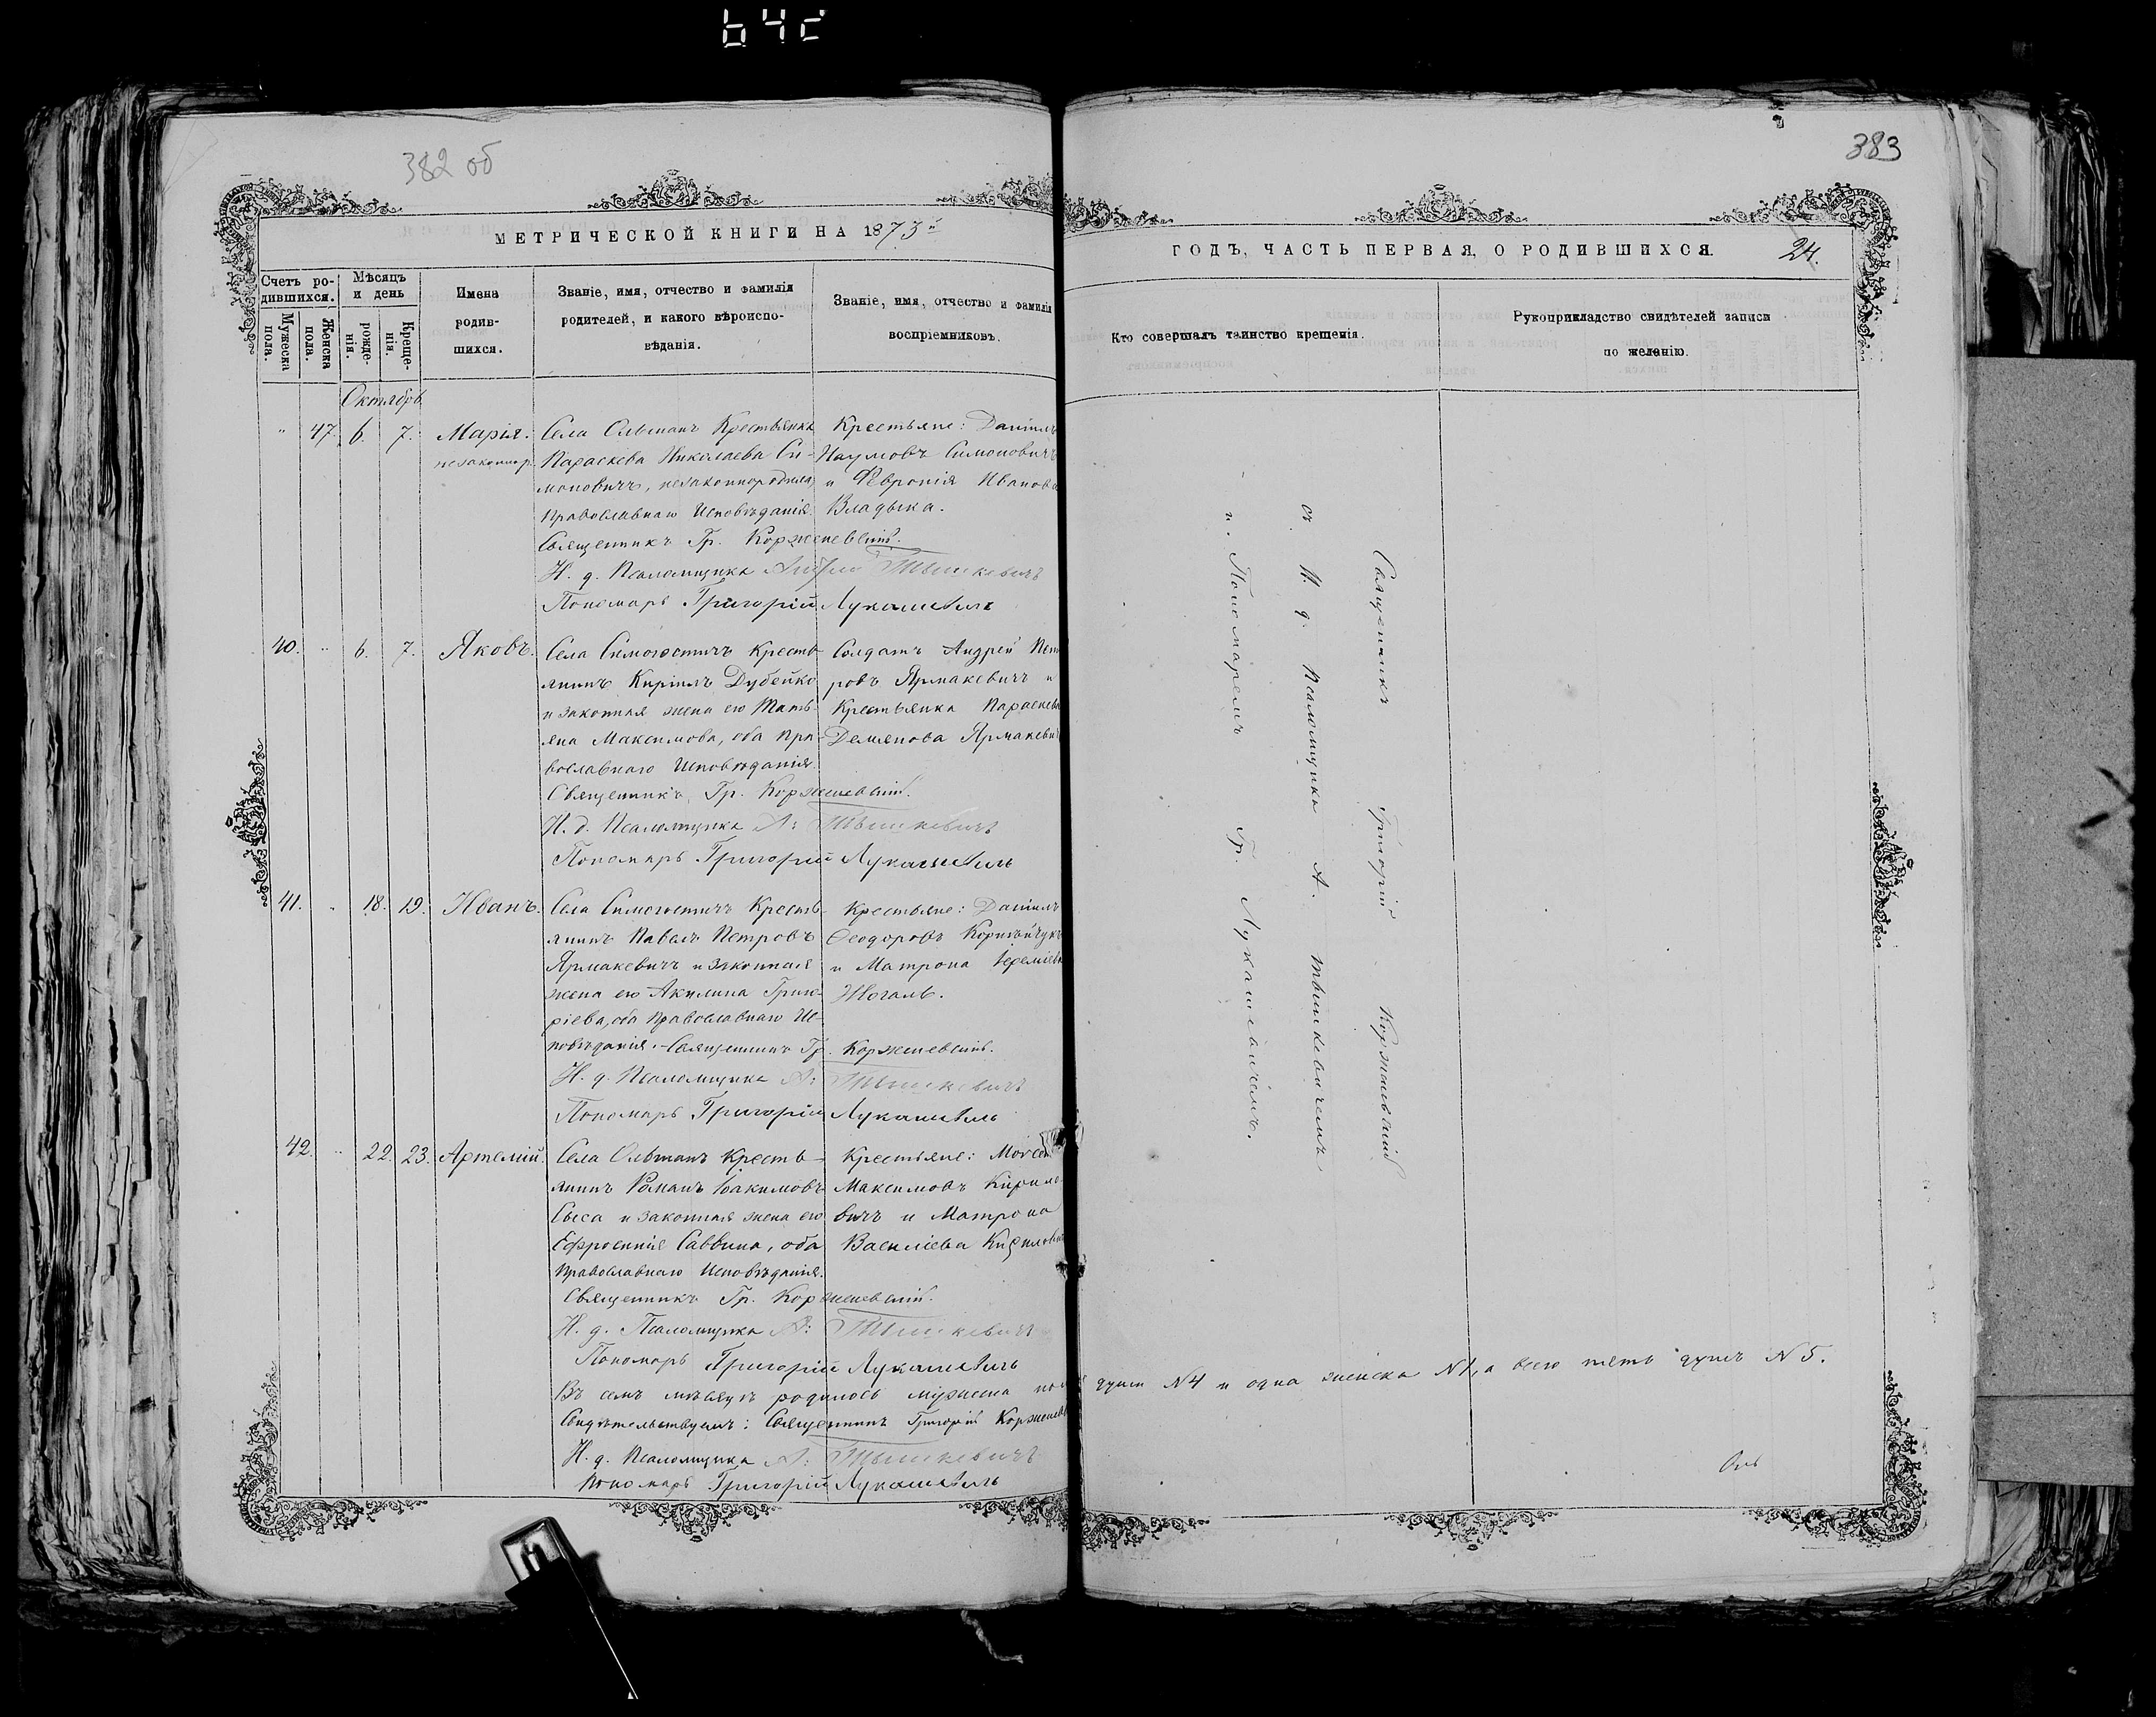 382 об
383
МЕТРИЧЕСКОЙ КНИГИ НА 1873й
ГОДЪ, ЧАСТЬ ПЕРВАЯ, О РОДИВШИХСЯ.
24.
Счетъ родившихся.
Мужеска пола.
Женска пола.
Мѣсяцъ и день
рожденія.
Крещенія.
Имена родившихся.
Званіе, имя, отчество и фамилія родителей, и какого вѣроисповѣданія.
Званіе, имя, отчество и фамилія воспріемниковъ.
Кто совершалъ таинство крещенія.
Рукоприкладство свидѣтелей записи по желанію.
Октябрь
" 47. 6. 7. Марія. Села Ольманъ Крестьянка
незаконнор. Параскева Николаева Си-
моновичъ, незаконнородила,
Православнаго Исповѣданія.
Крестьяне: Даніилъ
Наумовъ Симоновичъ
и Февронія Иванова
Владыка.
Священникъ Гр. Корженевскій.
И. д. Псаломщика Тышкевичъ
Пономарь Григорій Лукашевичъ
40. " 6. 7. Яковъ. Села Симогостичъ Кресть-
янинъ Кирилъ Дубейко
и законная жена его Тать-
яна Максимова, оба Пра-
вославнаго Исповѣданія.
Солдатъ Андрей Пет
ровъ Ярмакевичъ и
Крестьянка Параскева
Демянова Ярмакевич
Священникъ, Гр. Корженевскій.
И. д. Псаломщика А: Тышкевичъ
Пономарь Григорій Лукашевичъ
41. " 18. 19. Иванъ. Села Симогостичъ Кресть-
янинъ Павелъ Петровъ
Ярмакевичъ и законная
жена его Акилина Григо-
ріева, оба Православнаго Ис-
повѣданія.
Крестьяне: Даніилъ
Ѳеодоровъ Корнѣйчукъ
и Матрона Іереміева
Жогаль.
Священникъ Гр. Корженевскій.
И. д. Псаломщика А: Тышкевичъ
Пономарь Григорій Лукашевичъ
42. " 22. 23. Артемій. Села Ольманъ Кресть-
янинъ Романъ Іоакимовъ
Сыса и законная жена его
Ефросинія Саввина, оба
Православнаго Исповѣданія.
Крестьяне: Моисей
Максимовъ Кирило-
вичъ и Матрона
Василіева Кирилович
Священникъ Гр. Корженевскій.
И. д. Псаломщика А: Тышкевичъ
Пономарь Григорій Лукашевичъ
Въ семъ мѣсяцѣ родилось мужеска пола душъ №4 и одна женска №1, а всего пять душъ №5.
Свидѣтельствуемъ: Священникъ Григорій Корженевск
И. д. Псаломщика А: Тышкевичъ
Пономарь Григорій Лукашевичъ
Священникъ Григорій Корженевскій
съ И. д. Псаломщика А. Тышкевичемъ
и Пономаремъ Гр. Лукашевичемъ.